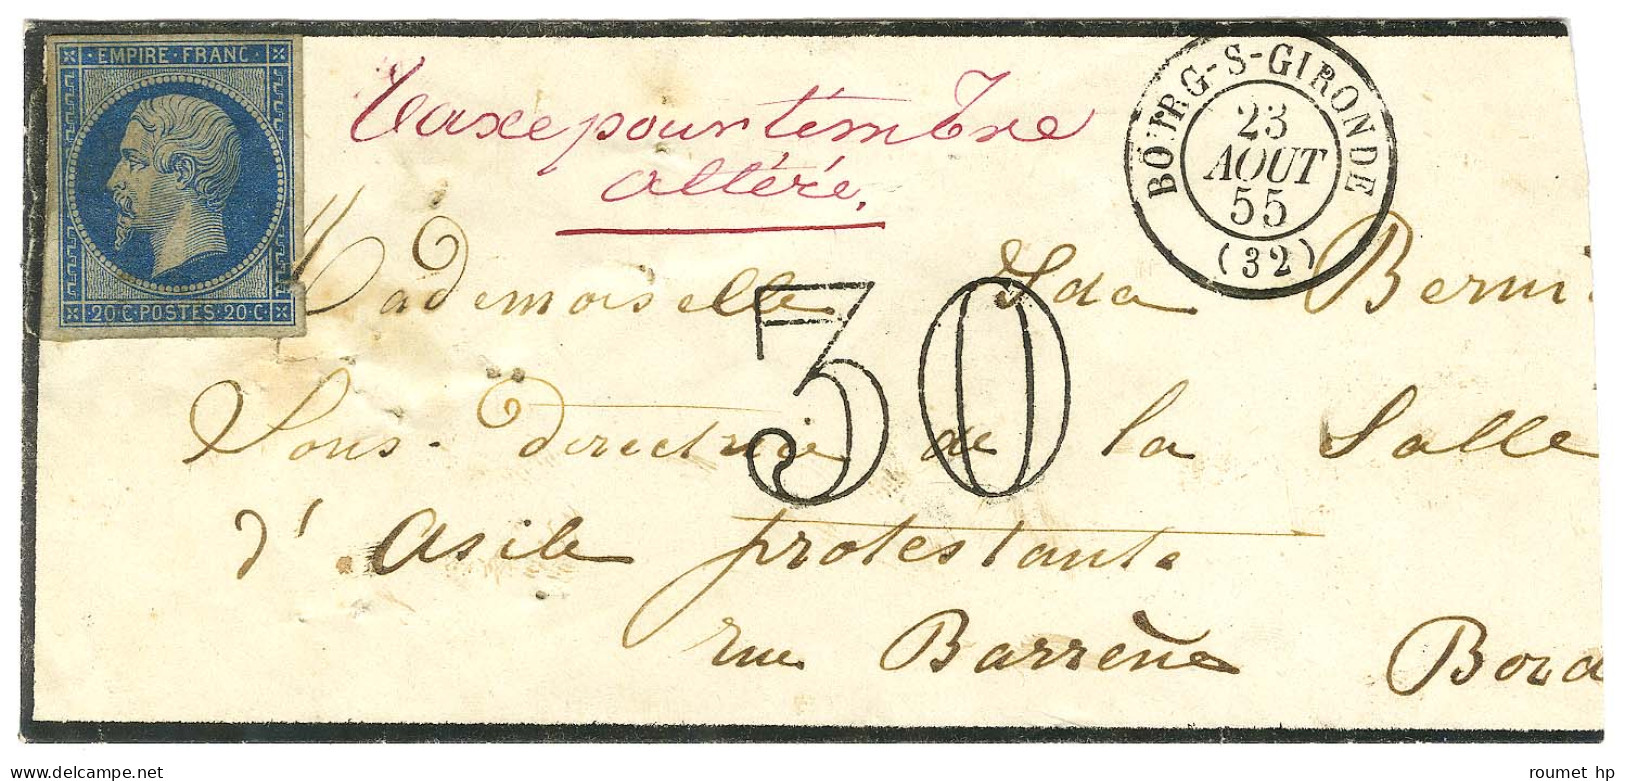 EMPIRE · FRANC
20 · C POSTES · 20 · C
Taxe pour timbre
altéré.
BOURG-S-GIRONDE
23
AOUT
55
(32)
Mademoiselle Ida
30
Sous-directrice de la Salle
d'Asile protestante
rue Barrène Bord
delcampe.net
roumet hp